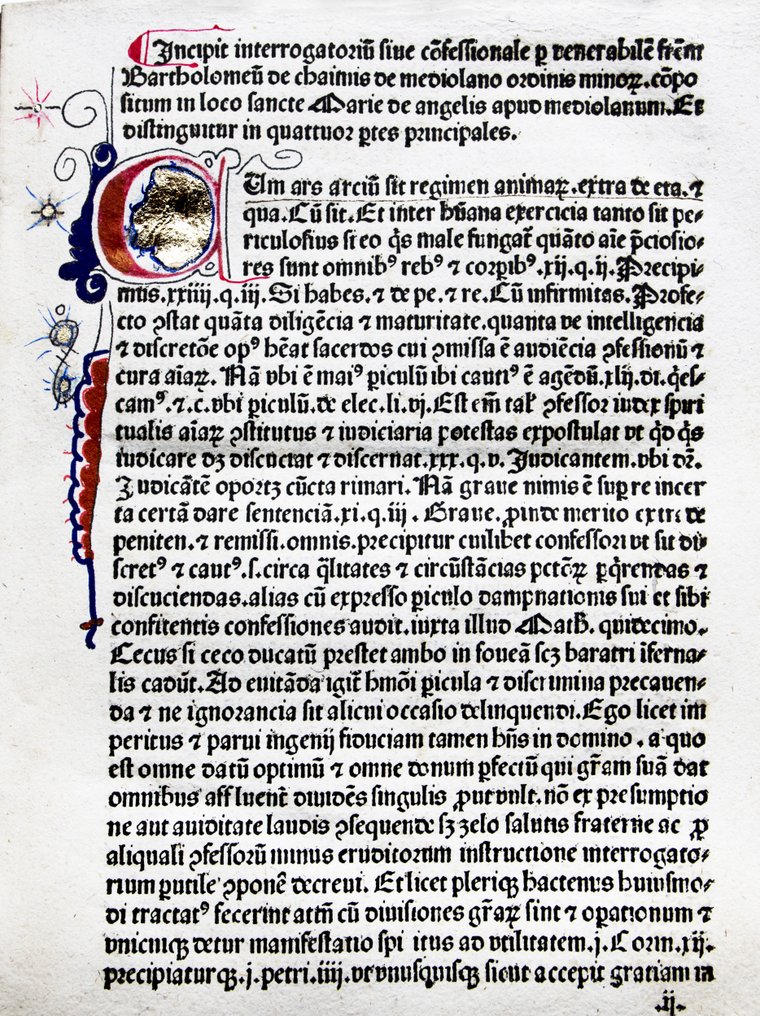 Incipit interrogatoriū siue cōfessionale ꝑ venerabilē frēm
Bartholomeū de chaimis de mediolano ordinis minoꝝ. cōpo
situm in loco sancte Marie de angelis apud mediolanum. Et
distinguitur in quattuor ꝑtes principales.
CUm ars arciū sit regimen animaꝝ. extra de eta. ⁊
qua. Cū sit. Et inter hūana exercicia tanto sit pe⸗
riculosius si eo q̄s male fungat̄ quāto aīe p̄ciosio⸗
res sunt omnibꝰ rebꝰ ⁊ corꝑibꝰ. xij. q. ij. Precipi⸗
mus. xxiiii. q. iii. Si habes. ⁊ de pe. ⁊ re. Cū infirmitas. Profe⸗
cto ꝯstat quāta diligēcia ⁊ maturitate. quanta ve intelligencia
⁊ discretōe opꝰ hēat sacerdos cui ꝯmissa ē audiēcia ꝯfessionū ⁊
cura aīaꝝ. Nā vbi ē maiꝰ ꝑiculū ibi cautiꝰ ē agēdū. xlij. di. q̇es⸗
camꝰ. ⁊. c̄. vbi ꝑiculū. de elec. li. vj. Est em̄ tal̓ ꝯfessor iudex spiri
tualis aīaꝝ ꝯstitutus ⁊ iudiciaria potestas expostulat vt q̇d q̇s
iudicare dꝫ discuciat ⁊ discernat. xxx. q. v. Iudicantem. vbi dꝛ̄.
Iudicātē oportꝫ cūcta rimari. Nā graue nimis ē suꝑ re incer
ta certā dare sentenciā. xi. q. iij. Graue. ꝓinde merito extra de
peniten. ⁊ remissi. omnis. precipitur cuilibet confessori vt sit di⸗
scretꝰ ⁊ cautꝰ. s. circa q̄litates ⁊ circūstācias pctōꝝ ꝑq̇rendas ⁊
discuciendas. alias cū expresso ꝑiculo dampnationis sui et sibi
confitentis confessiones audit. iuxta illud Matħ. quidecimo.
Cecus si ceco ducatū prestet ambo in foueā scꝫ baratri iferna⸗
lis cadūt. Ad euitāda igit̄ hmōi ꝑicula ⁊ discrimina precauen⸗
da ⁊ ne ignorancia sit alicui occasio delinquendi. Ego licet im
peritus ⁊ parui ingenij fiduciam tamen hn̄s in domino. a quo
est omne datū optimū ⁊ omne donum ꝑfectū qui gr̄am suā dat
omnibus affluent̄ diuidēs singulis ꝓut vult. nō ex presumptio
ne aut auiditate laudis ꝯsequende sꝫ zelo salutis fraterne ac ꝓ
aliquali ꝯfessorū minus eruditorum instructione interrogato⸗
rium ꝑutile ꝯponē decreui. Et licet pleriqꝫ hactenus huiusmo⸗
di tractatꝰ fecerint attn̄ cū diuisiones gr̄aꝝ sint ⁊ oꝑationum ⁊
vnicuiqꝫ detur manifestatio spiritus ad vtilitatem. j. Corin. xij.
precipiaturqꝫ. j. petri. iiij. vt vnusquisqꝫ sicut accepit gratiam in
.ij.